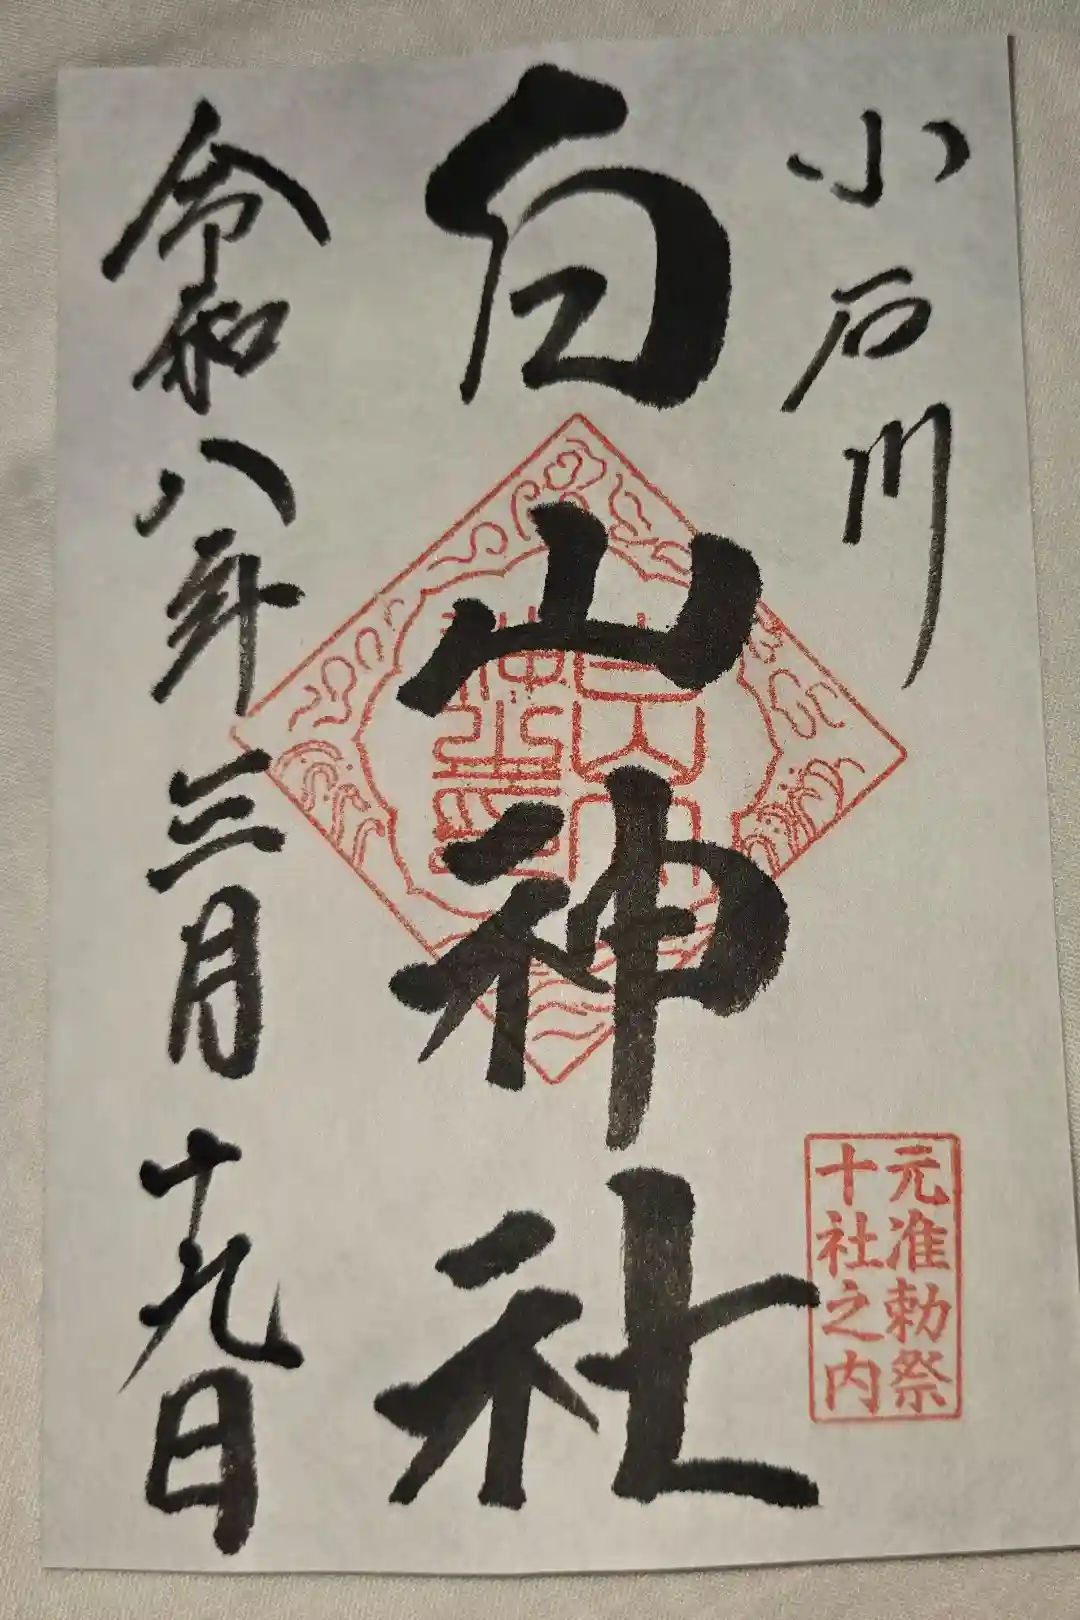 小石川
白山神社
令和八年三月十九日
元准勅祭
十社之内